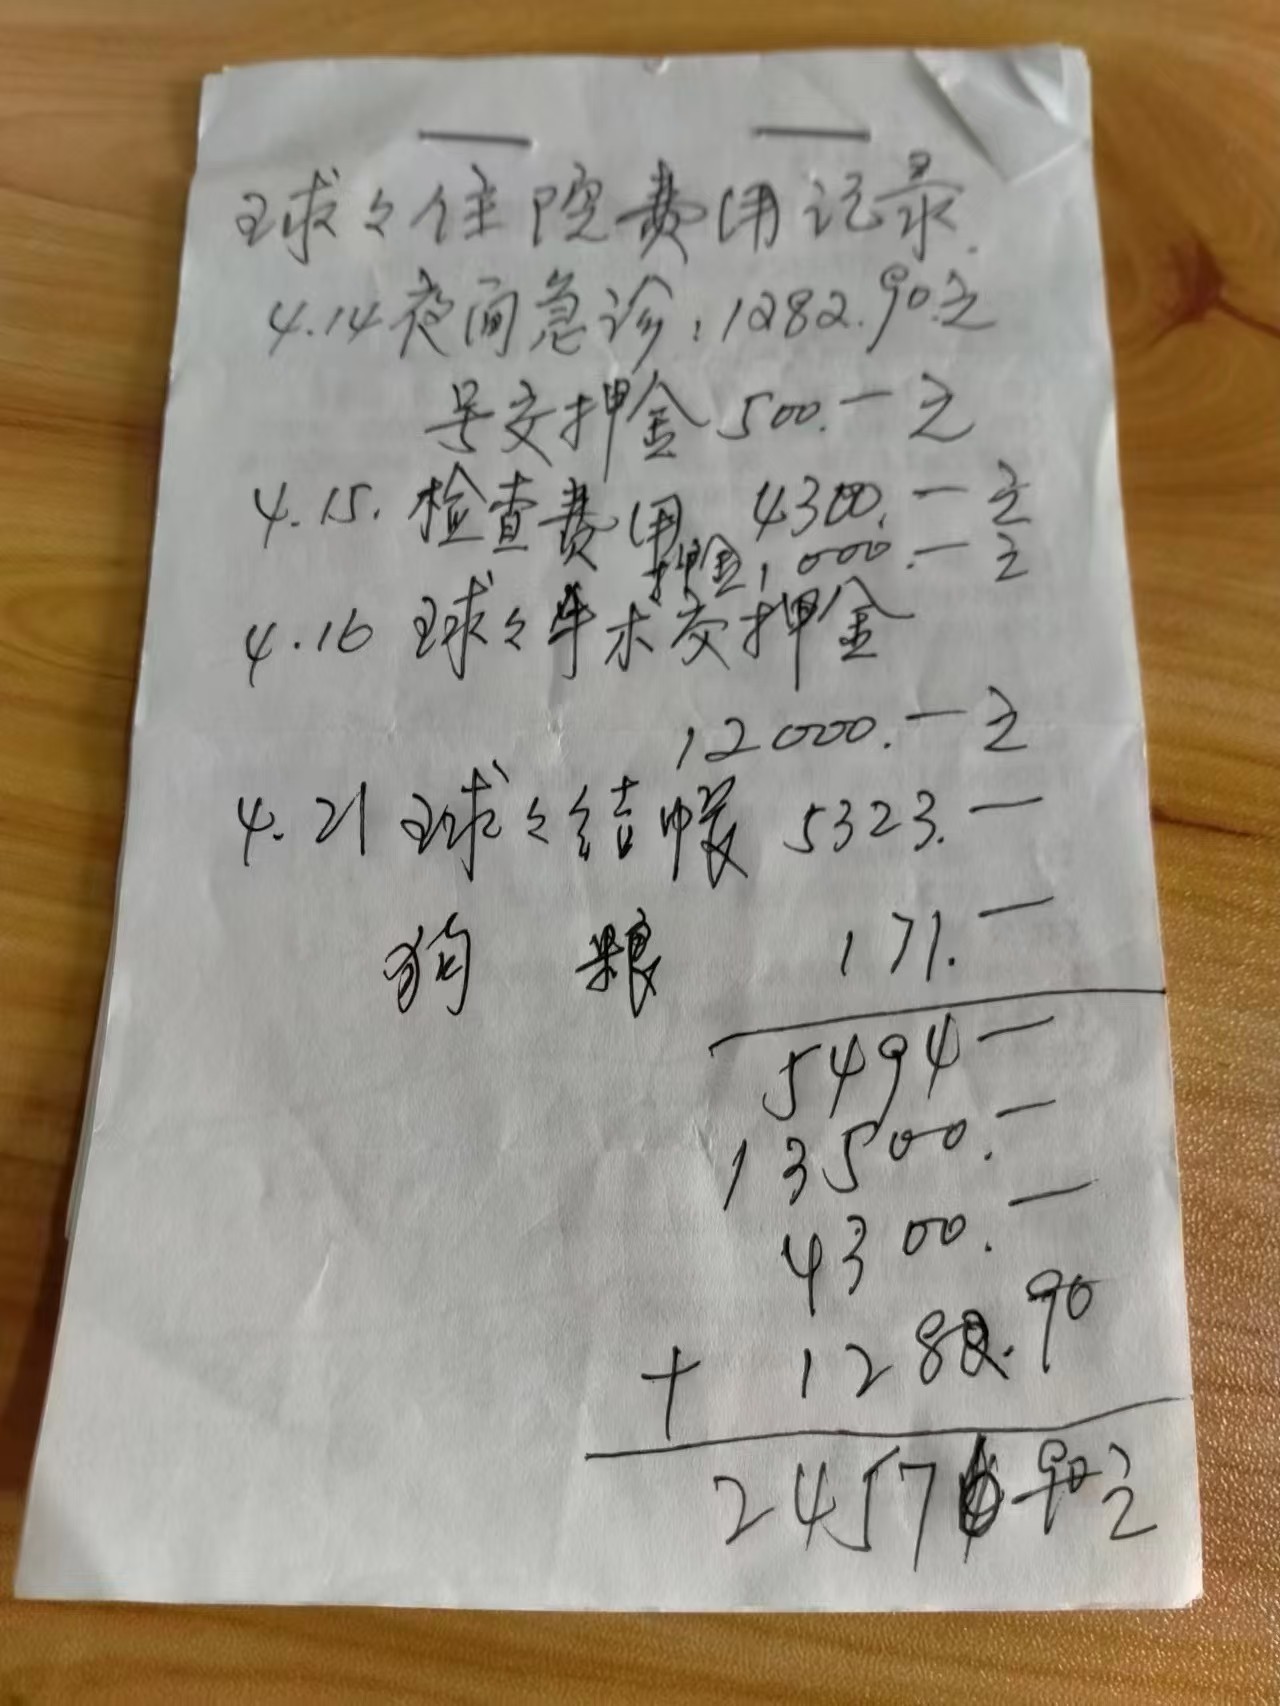 球々住院费用记录.
4.14夜间急诊:1282.90元
另交押金500.一元
4.15.检查费用 4300.一元
押金1000.一元
4.16 球々手术交押金
12000.一元
4.21球々结帐 5323.一
狗 粮 171.一
5494一
13500.一
4300.一
+ 1282.90
24576.90元